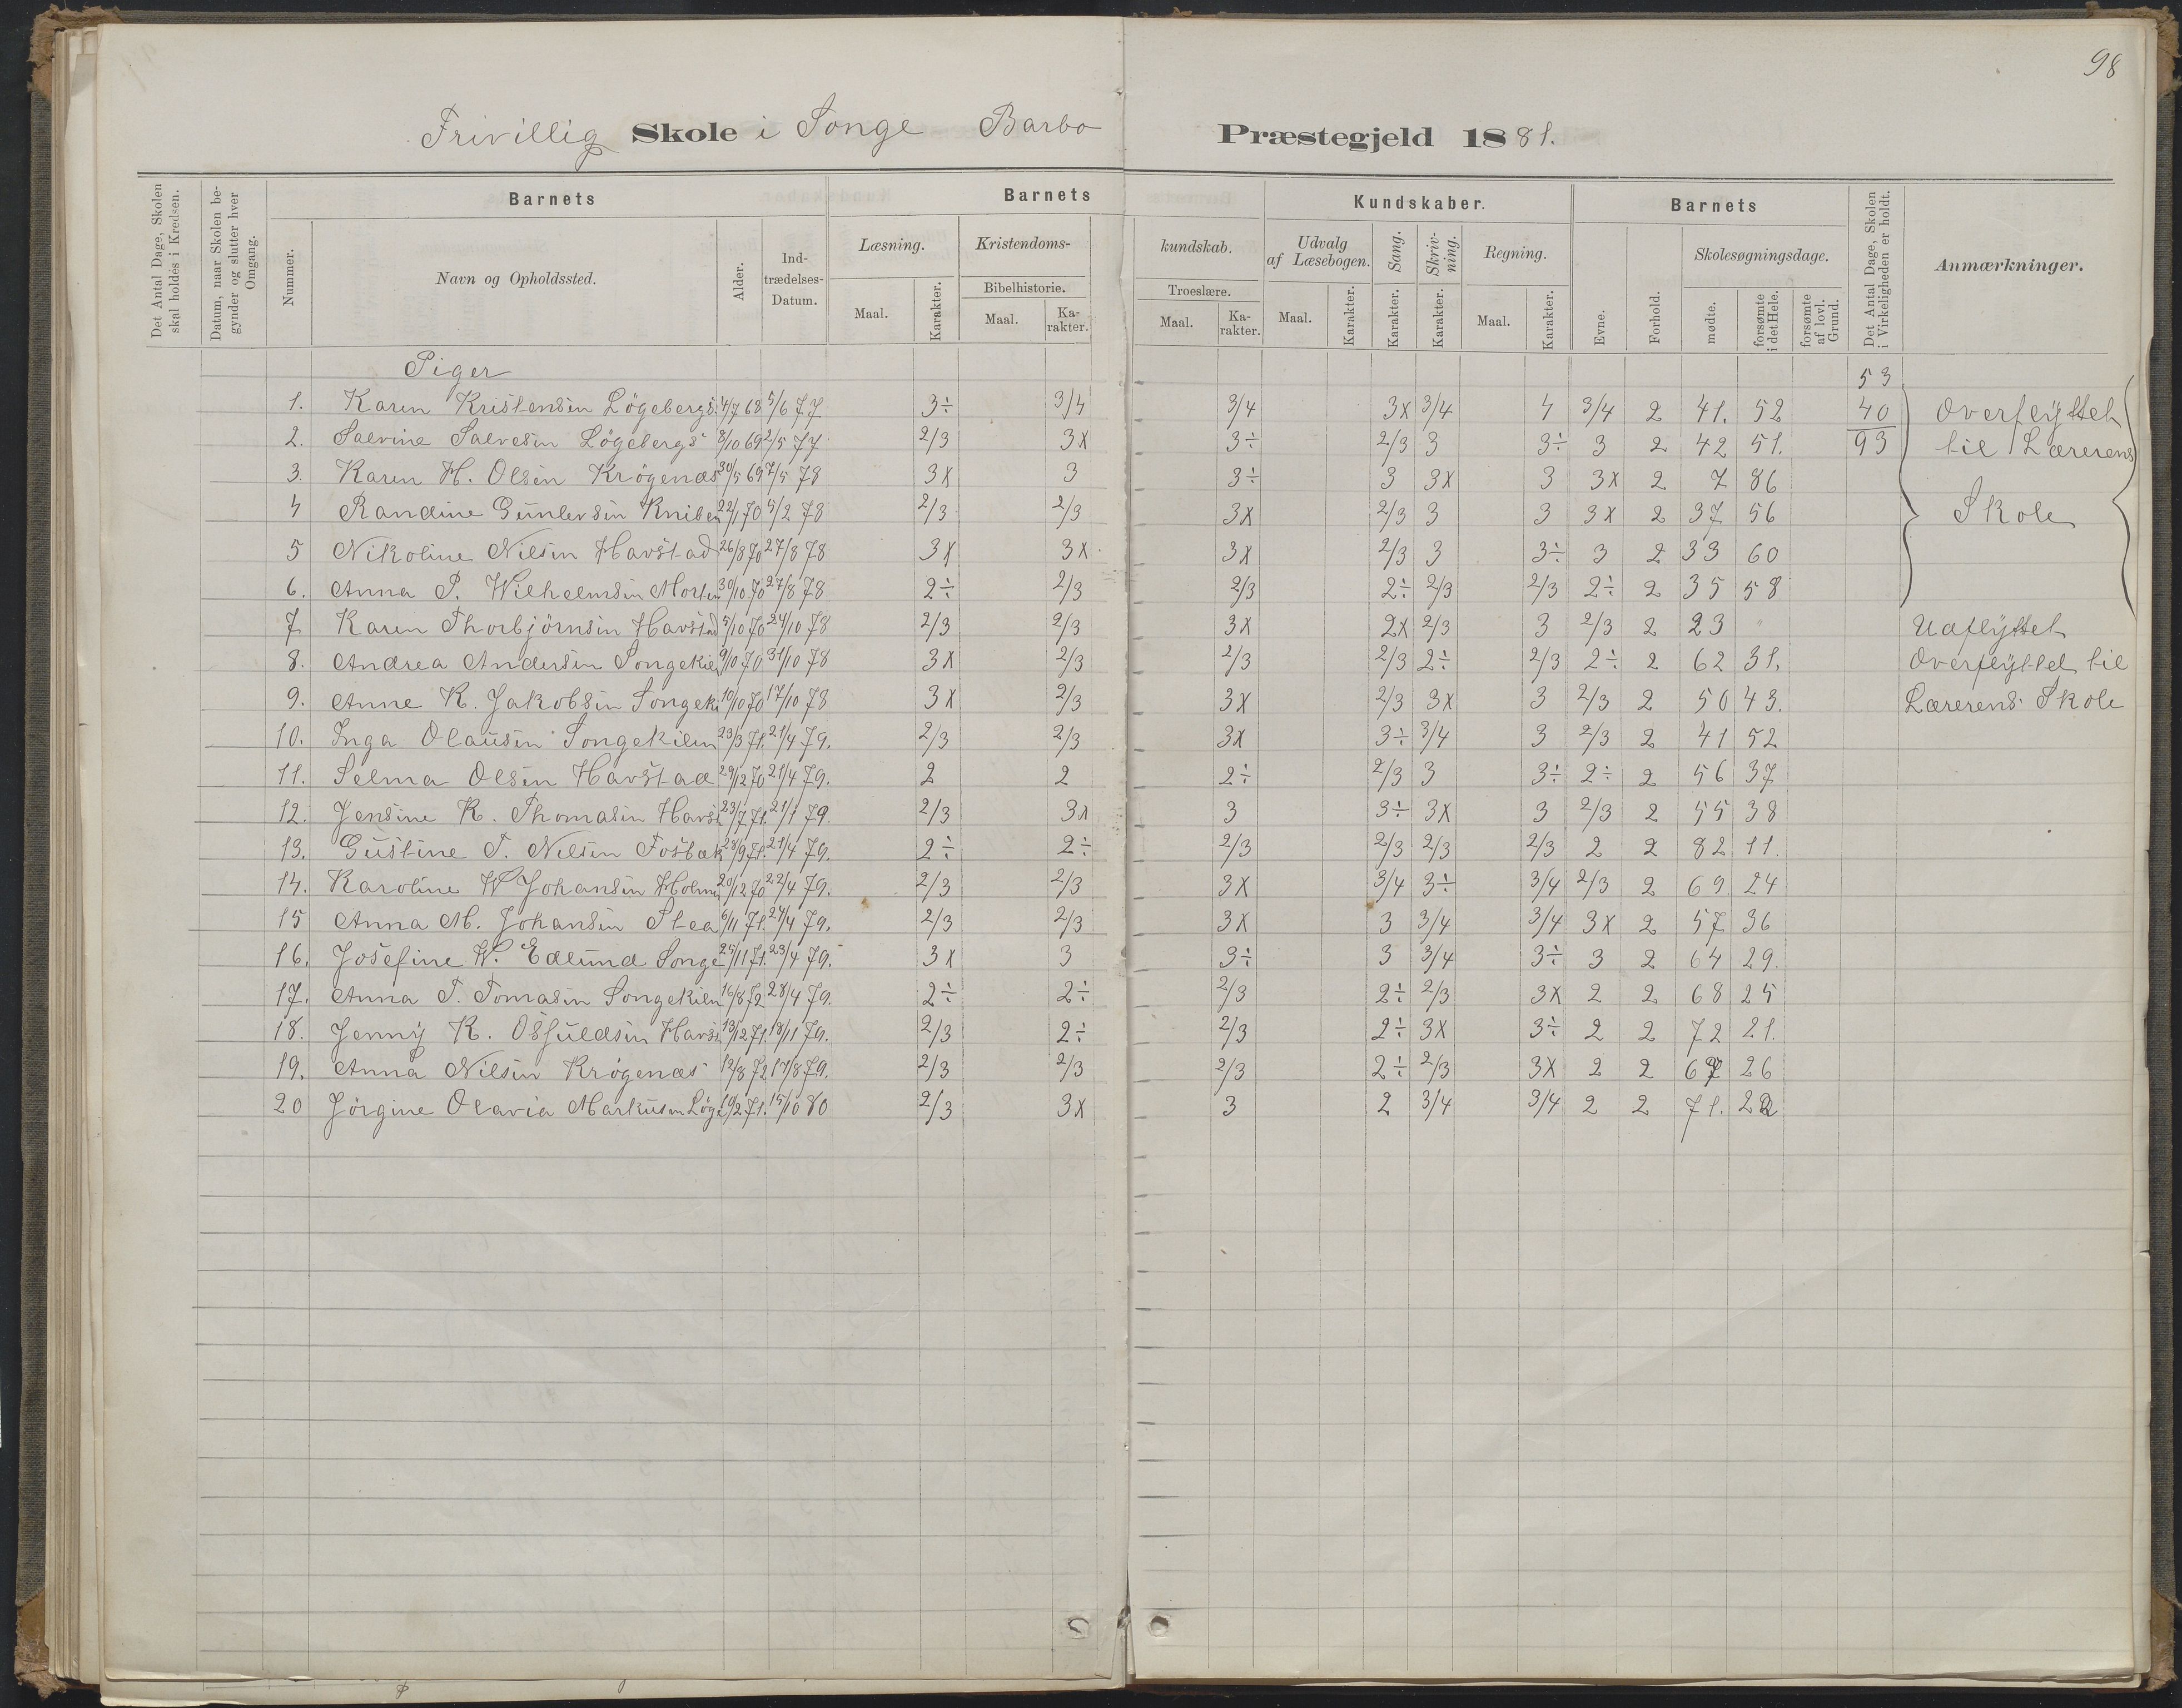 98
Frivillig Skole i Songe Barbo Præstegjeld 1881.
Det Antal Dage, Skolen skal holdes i Kredsen.
Datum, naar Skolen begynder og slutter hver Omgang.
Barnets Barnets Kundskaber. Barnets
Nummer. Navn og Opholdssted. Alder. Ind-trædelses-Datum. Læsning. Kristendoms-kundskab. Udvalg af Læsebogen. Sang. Skriv-ning. Regning. Evne. Forhold. Skolesøgningsdage. Det Antal Dage, Skolen i Virkeligheden er holdt. Anmærkninger.
Bibelhistorie. Troeslære.
Maal. Karakter. Maal. Ka-rakter. Maal. Ka-rakter. Maal. Karakter. Karakter. Karakter. Maal. Karakter. mødte. forsømte i det Hele. forsømte af lovl. Grund.
Piger 53
1. Karen Kristensen Løgebergs. 4/7 68 5/6 77 3÷ 3/4 3/4 3x 3/4 4 3/4 2 41. 52 40 Overflyttet
2. Salvine Salvesen Løgebergs 8/10 69 2/5 77 2/3 3x 3÷ 2/3 3 3÷ 3 2 42 51. 93 til Lærerens
3. Karen H. Olsen Krøgenæs 30/5 69 7/5 78 3x 3 3÷ 3 3x 3 3x 2 7 86
4 Randine Gunlevsen Kniben 22/1 70 5/2 78 2/3 2/3 3x 2/3 3 3 3x 2 37 56 Skole
5 Nikoline Nilsen Havstad 26/3 70 27/8 78 3x 3x 3x 2/3 3 3÷ 3 2 33 60
6. Anna P. Wilhelmsen Morten 30/10 70 27/8 78 2÷ 2/3 2/3 2÷ 2/3 2/3 2÷ 2 35 58
7 Karen Thorbjörnsen Havstad 5/10 70 24/10 78 2/3 2/3 3x 2x 2/3 3 2/3 2 23 " Udflyttet
8. Andrea Andersen Songekilen 9/10 70 31/10 78 3x 2/3 2/3 2/3 2÷ 2/3 2÷ 2 62 31. Overflyttet til
9. Anne K. Jakobsen Songeki 10/10 70 17/10 78 3x 2/3 3x 2/3 3x 3 2/3 2 50 43. Lærerens Skole
10. Inga Olausen Songekilen 23/3 71. 21/4 79. 2/3 2/3 3x 3÷ 3/4 3 2/3 2 41 52
11. Selma Olsen Havstad 29/12 70 21/4 79. 2 2 2÷ 2/3 3 3÷ 2÷ 2 56 37
12. Jensine K. Thomasen Havst 23/7 71. 21/1 79. 2/3 3x 3 3÷ 3x 3 2/3 2 55 38
13. Gustine T. Nilsen Fosbæk 28/9 71. 21/4 79. 2÷ 2÷ 2/3 2/3 2/3 2/3 2 2 82 11.
14. Karoline W Johansen Holme 20/12 70 22/4 79. 2/3 2/3 3x 3/4 3÷ 3/4 2/3 2 69. 24
15 Anna M. Johansen Stea 6/11 71. 24/4 79. 2/3 2/3 3x 3 3/4 3/4 3x 2 57 36
16. Josefine W. Edlund Songe 25/11 71. 23/4 79. 3x 3 3÷ 3 3/4 3÷ 3 2 64 29.
17. Anna T. Tomasen Songekilen 16/8 72 28/4 79. 2÷ 2÷ 2/3 2÷ 2/3 3x 2 2 68 25
18. Jenny K. Osfuldsen Havst 13/12 71. 18/11 79. 2/3 2÷ 2/3 2÷ 3x 3÷ 2 2 72 21.
19. Anna Nilsen Krøgenæs 12/8 72 17/8 79. 2/3 2/3 2/3 2÷ 2/3 3x 2 2 67 26
20 Jörgine Olavia Markusen Løge 10/2 71. 15/10 80 2/3 3x 3 2 3/4 3/4 2 2 71. 22